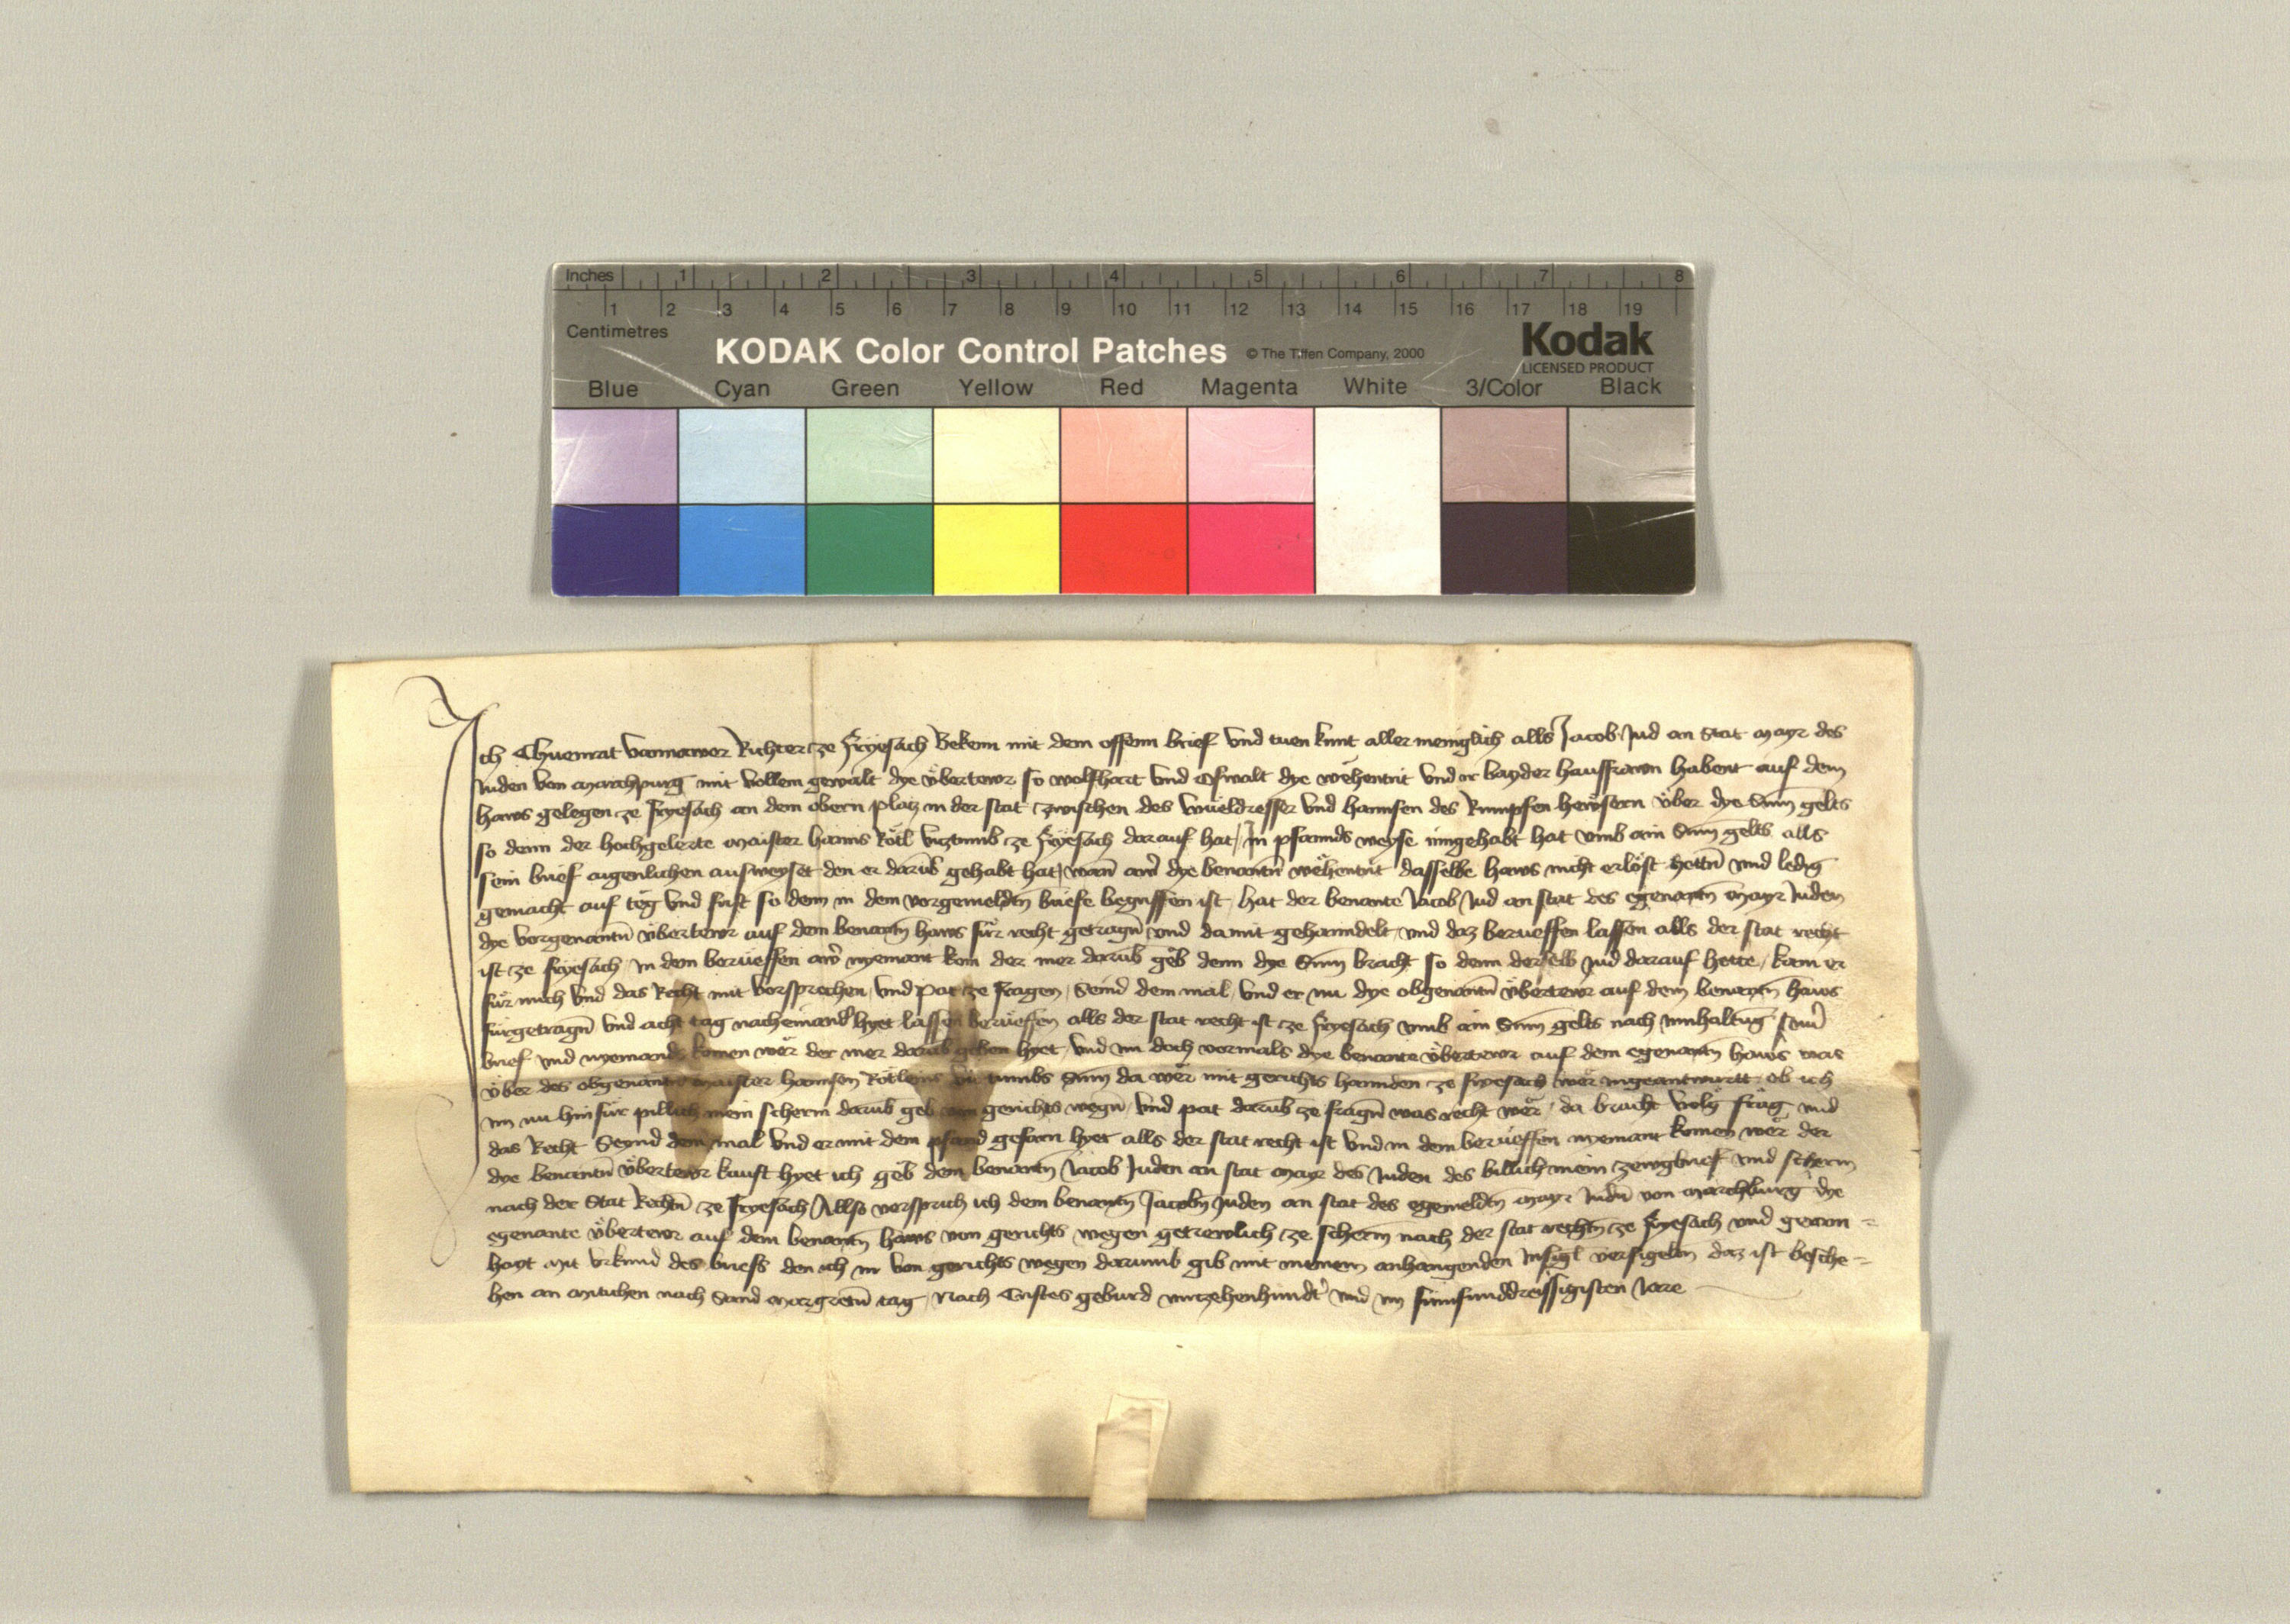 Inches 1 2 3 4 5 6 7 8
1 2 3 4 5 6 7 8 9 10 11 12 13 14 15 16 17 18 19
Centimetres
KODAK Color Control Patches © The Tiffen Company, 2000 Kodak
LICENSED PRODUCT
Blue Cyan Green Yellow Red Magenta White 3/Color Black
Ich Chuenrat Richter ze Fryesach Bekenn mit dem offenn brief vnd tuen kunt aller meniglich alls Jacob Jud an stat Mayr des
Juden von Marchpurg mit vollem gewalt dye vͤbertewr so wolfhart vnd Oswalt dye wehentrit vnd ir bayder hausfrawn habent auf dem
haws gelegen ze fryesach an dem obern platz in der stat zwischen des vnd hannsen des Rumpfen hewsern vͤber dye Sum̄ gelts
so denn der hochgelerte maister hanns Rötl viztumb ze Fryesach darauf hat / In pfannds weyse inngehabt hat vmb ain Sum̄ gelts alls
sein brief aigenlichen ausweyset den er darūb gehabt hat / wan̄ dye benantn̄ wehentrit dasselbe haws nicht erlöst hettn̄ vnd ledig
gemacht auf teg vnd frist so denn in dem vorgemeldtn̄ briefe begriffen ist / hat der benante Jacob Jud an stat des egenantn̄ Mayr Juden
dye vorgenantn̄ vͤbertewr auf dem benantn̄ haws für recht getragn̄ vnd damit gehanndelt vnd daz berueffen lassen alls der stat recht
ist ze fryesach / In dem berueffen nyemant kom der mer darūb geb denn dye Sum̄ bracht so denn derselb Jud darauf hette / kam er
für mich vnd das Recht mit vorsprechen vnd pat ze fragen / Seind dem mal vnd er nu dye obgenantn̄ vͤbertewr auf dem benantn̄ haws
fürgetragn̄ vnd acht tag nacheinand hyet lassen berueffen alls der stat recht ist ze fryesach vmb ain Sum̄ gelts nach innhaltūg
brief vnd nyemands komen wer der mer darūb geben hyet / vnd im doch vormals dye benante vͤbertewr auf dem egenantn̄ haws was
vͤber des obgenantn̄ maister hannsen Rötleins Sum̄ da wer mit gerichts hannden ze fryesach wer ingeantwurtt / ob ich
im nu hinfür pillich mein scherm darūb geb von gerichts wegn̄ / vnd pat darūb ze fragn̄ was recht wer / da bracht volg frag vnd
das Recht Seynd dem mal vnd er mit dem pfand gefarn hyet alls der stat recht ist vnd in dem berueffen nyemant komen wer der
dye benantn̄ vͤbertewr kauft hyet ich geb dem benantn̄ Jacob Juden an stat Mayr des Juden des billich mein zewgbrief vnd scherm
nach der Stat Rechtn̄ ze fryesach / Allso versprich ich dem benantn̄ Jacobn̄ Juden an stat des egemeldtn̄ Mayr Judn̄ von Marchburg dye
egenante vͤbertewr auf dem benantn̄ haws von gerichts wegen getrewlich ze scherm̄ nach der stat rechtn̄ ze fryesach vnd gewon=
hayt Mit vrkund des briefs den ich im von gerichts wegen darumb gib mit meinem anhangenden Insigl versigeltn̄ daz ist besche=
hen an Mitichen nach Sand Margretn̄ tag / Nach Cristes geburd virzehenhundt vnd im fünfunddreissigisten Jare